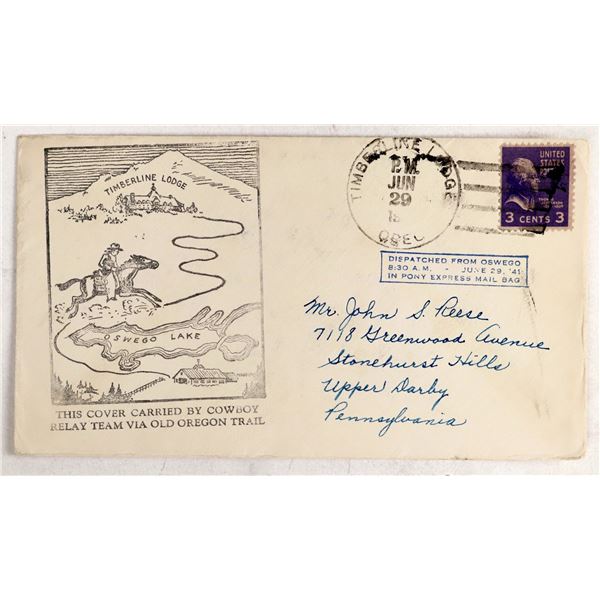 TIMBERLINE LODGE
OSWEGO LAKE
THIS COVER CARRIED BY COWBOY
RELAY TEAM VIA OLD OREGON TRAIL
TIMBERLINE LODGE
P.M.
JUN
29
UNITED
STATES
3 CENTS 3
DISPATCHED FROM OSWEGO
8:30 A.M. - JUNE 29, '41
IN PONY EXPRESS MAIL BAG
Mr. John S. Reese
7118 Greenwood Avenue
Stonehurst Hills
Upper Darby
Pennsylvania